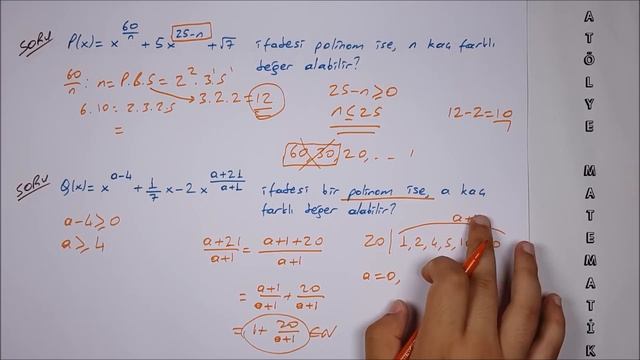 SORU P(x) = x^(60/n) + 5x^(25-n) + √7 ifadesi polinom ise, n kaç farklı
değer alabilir?
60/n : n = P.B.S = 2².3¹.5¹
6.10 = 2.3.2.5 3.2.2 = 12
=
25-n ≥ 0
n ≤ 25
12-2 = 10
60, 30, 20, ... 1
SORU Q(x) = x^(a-4) + 1/7 x - 2x^((a+21)/(a+1)) ifadesi bir polinom ise, a kaç
farklı değer alabilir?
a-4 ≥ 0
a ≥ 4
(a+21)/(a+1) = (a+1+20)/(a+1)
= (a+1)/(a+1) + 20/(a+1)
= 1 + 20/(a+1) ∈ N
a+
20 | 1, 2, 4, 5, 1 0
a = 0,
ATÖLYE MATEMATİK